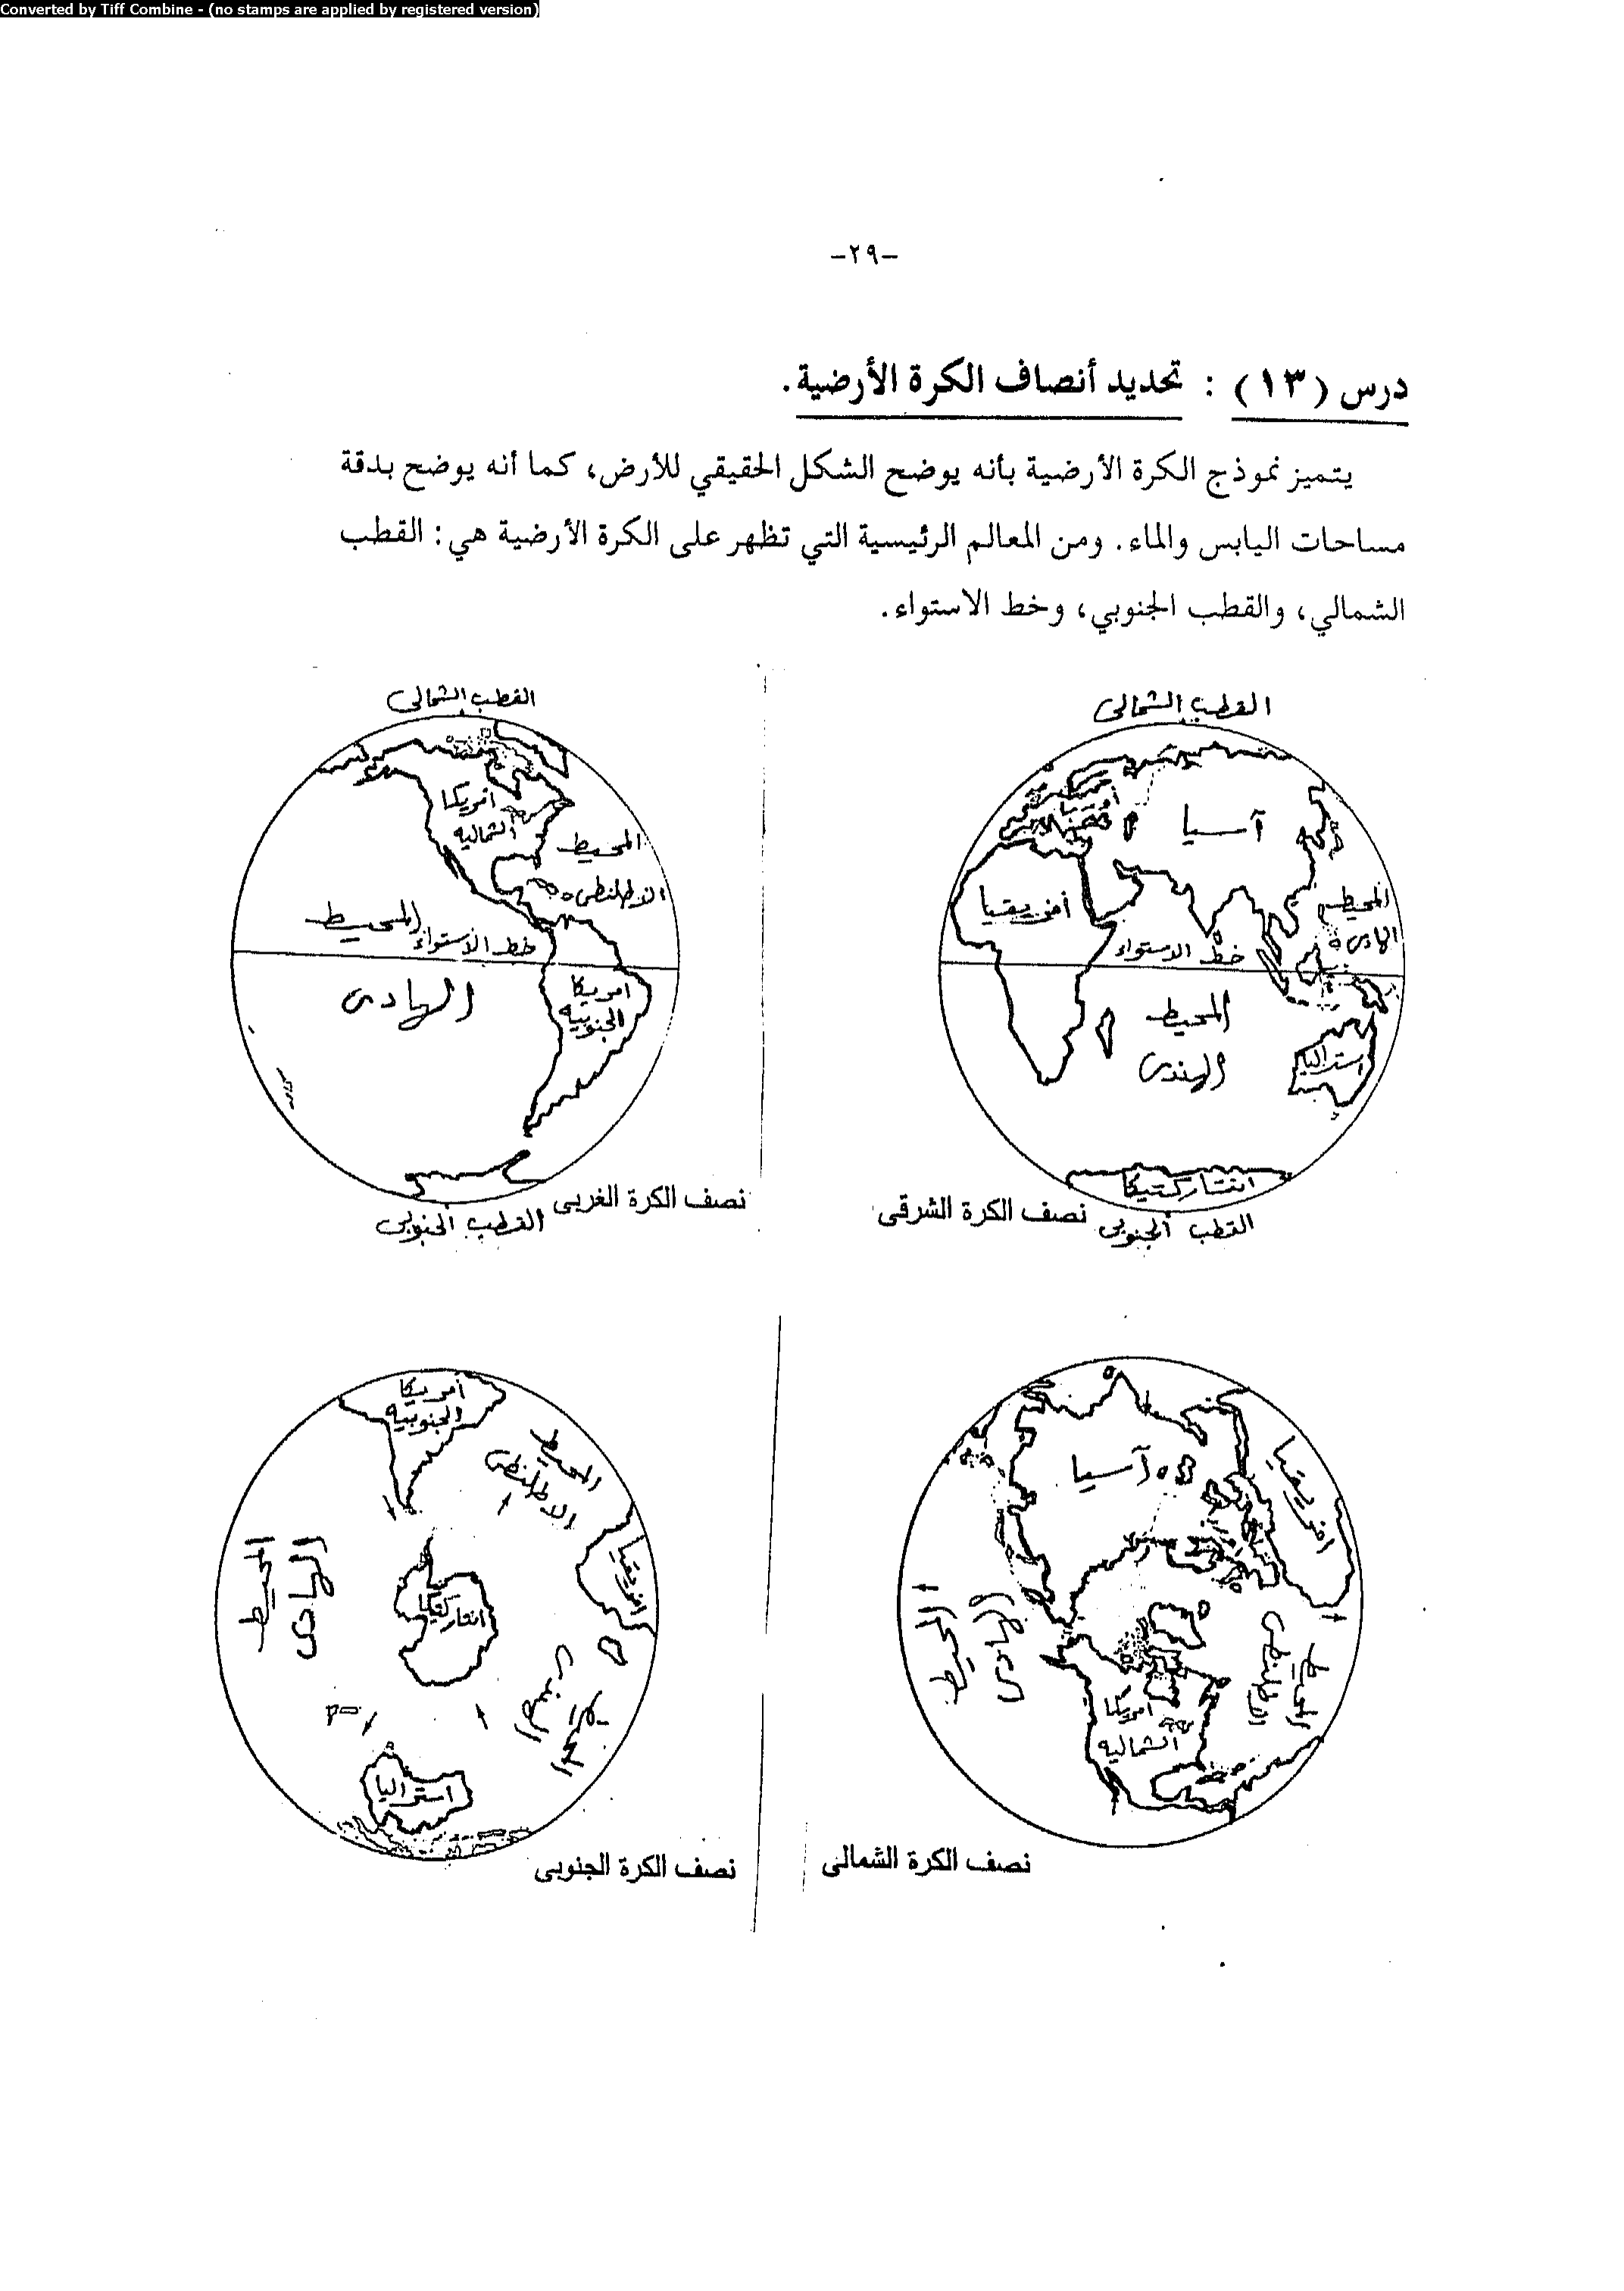 Converted by Tiff Combine - (no stamps are applied by registered version)
-٢٩-
درس (١٣) : تحديد أنصاف الكرة الأرضية.
يتميز نموذج الكرة الأرضية بأنه يوضح الشكل الحقيقي للأرض، كما أنه يوضح بدقة
مساحات اليابس والماء. ومن المعالم الرئيسية التي تظهر على الكرة الأرضية هي: القطب
الشمالي، والقطب الجنوبي، وخط الاستواء.
القطب الشمالى
آسيا
أفريقيا
المحيط
الهادى
خط الاستواء
المحيط
الهندى
استراليا
انتتاركتيكا
القطب الجنوبى
نصف الكرة الشرقى
القطب الشمالى
أمريكا
الشمالية
المحيط
الاطلنطى
المحيط
خط الاستواء
الهادى
أمريكا
الجنوبية
نصف الكرة الغربى
القطب الجنوبى
آسيا
افريقيا
المحيط
الهادى
المحيط
الاطلنطى
أمريكا
الشمالية
نصف الكرة الشمالى
أمريكا
الجنوبية
المحيط
الاطلنطى
المحيط
الهادى
افريقيا
انتاركتيكا
المحيط
الهندى
استراليا
نصف الكرة الجنوبى